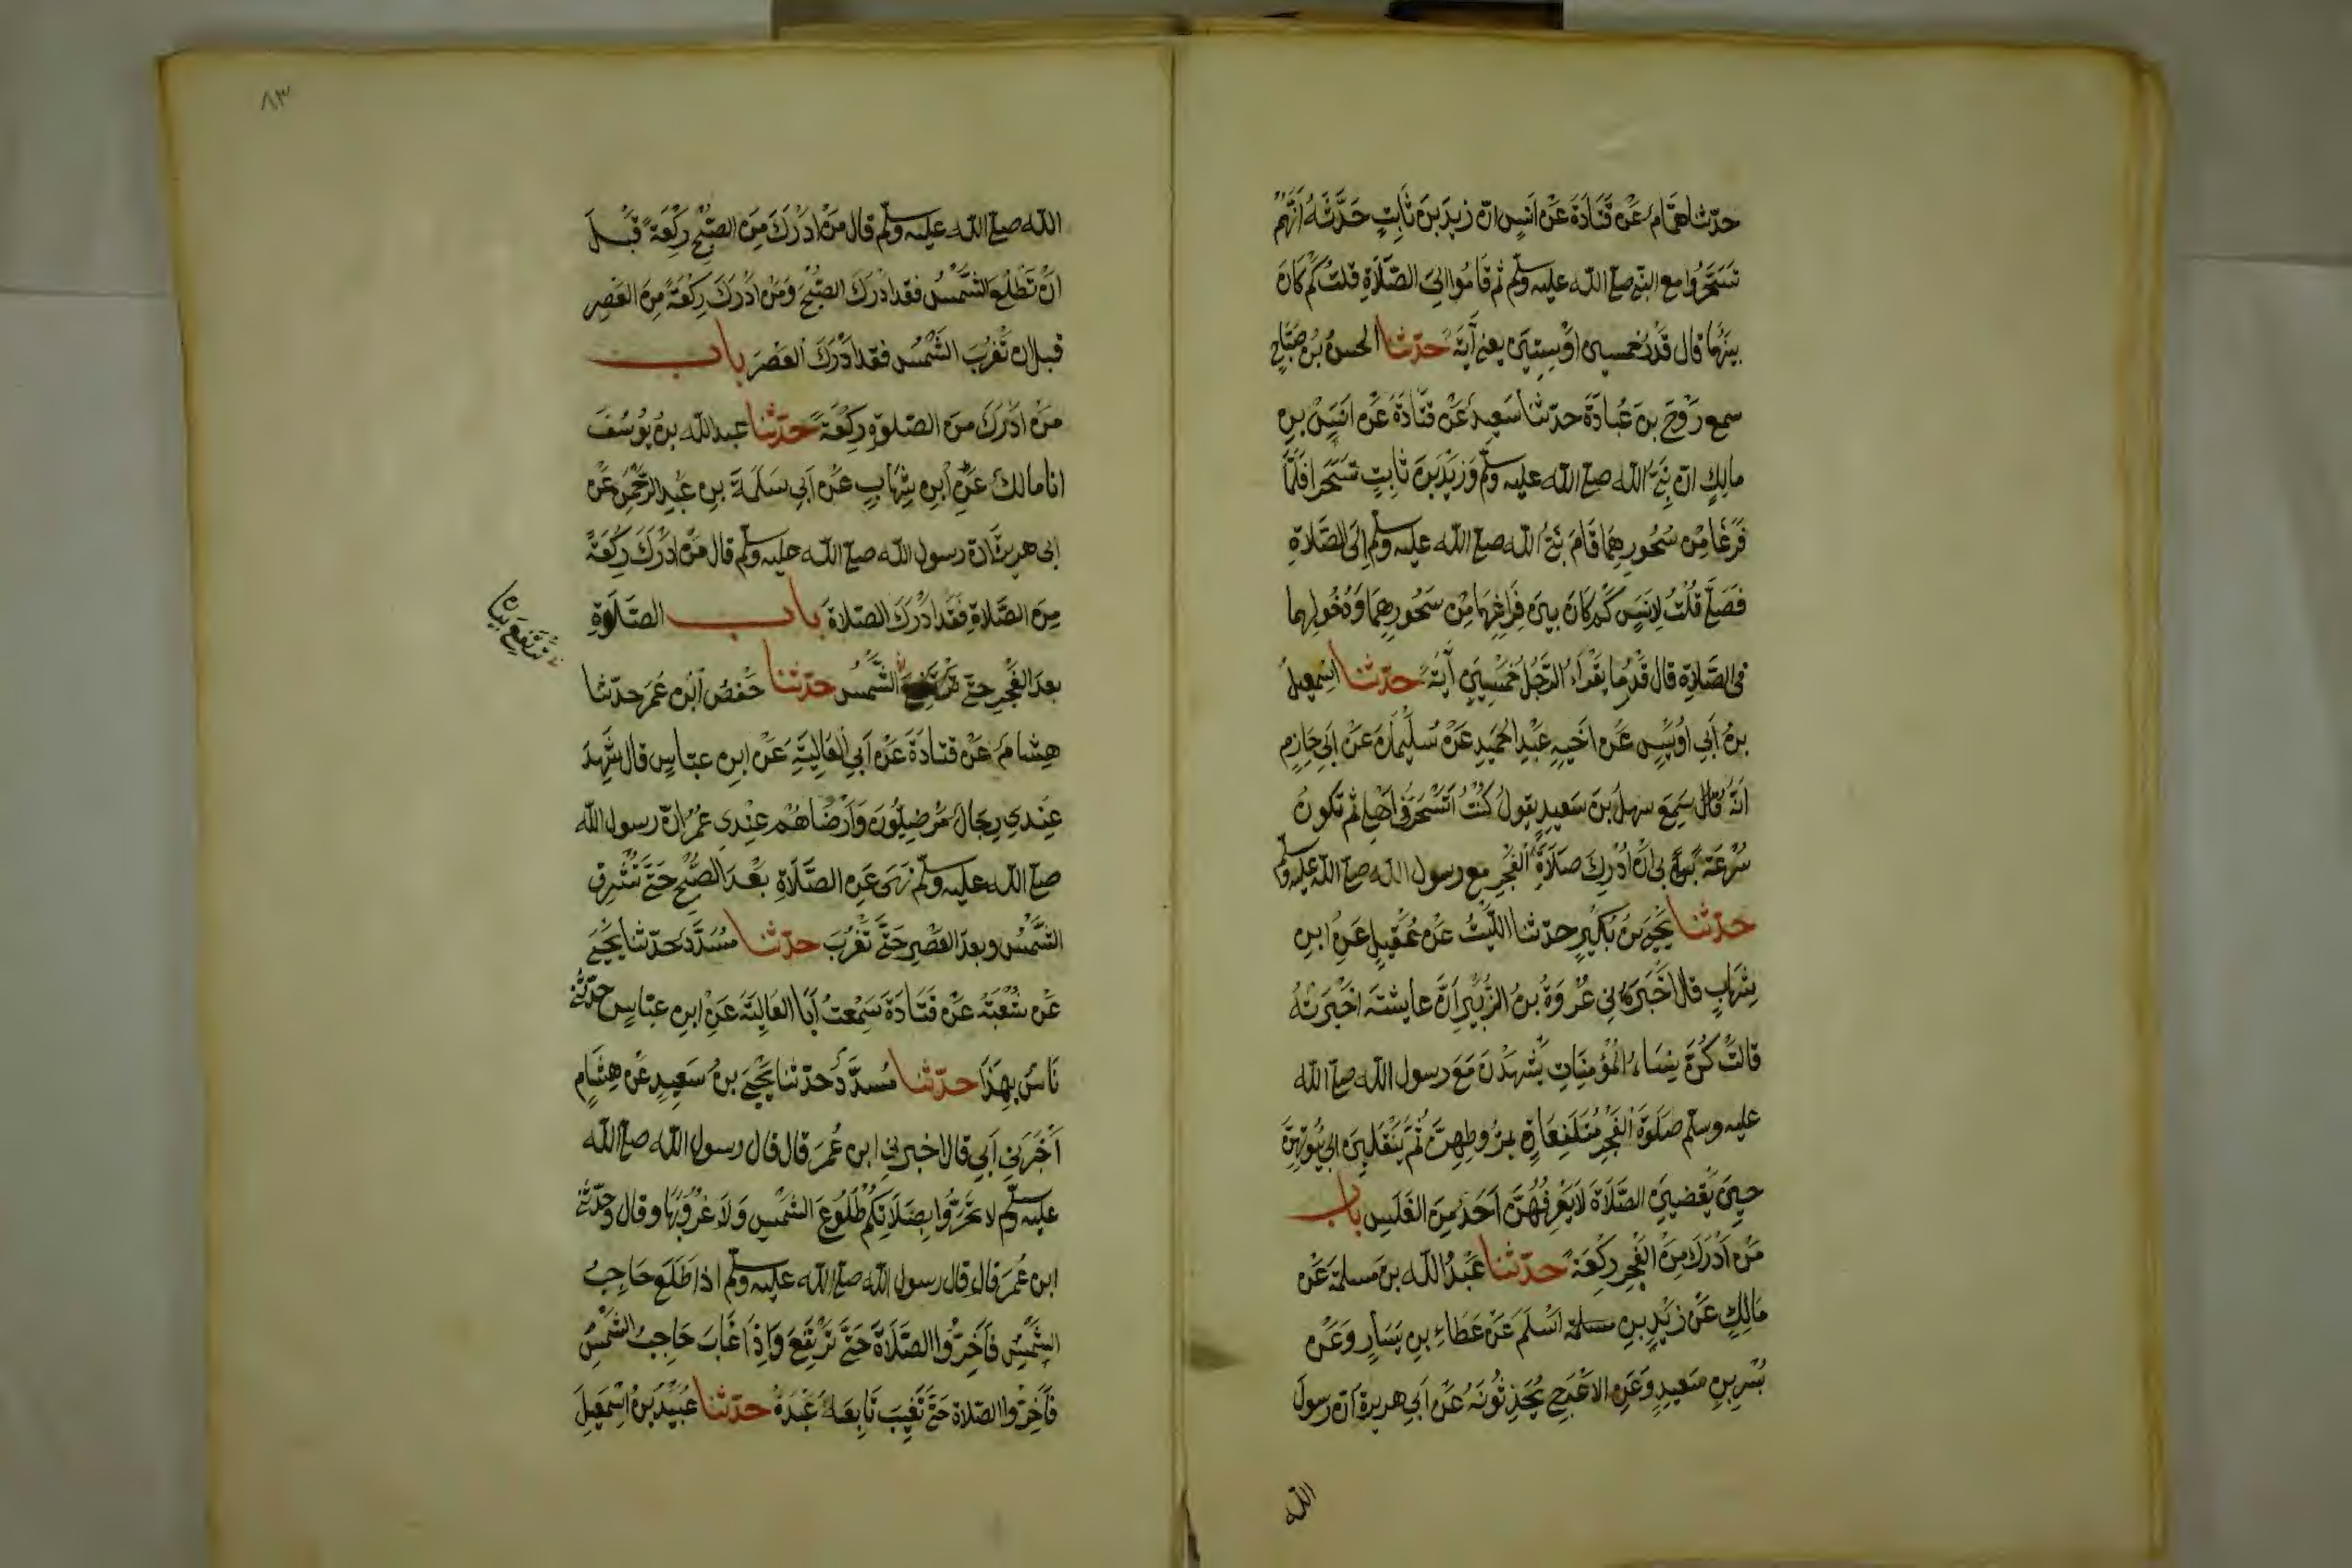 حدّثنا همَّام عَنْ قَتَادَةَ عَنْ اَنَسٍ انّ زيدَ بنَ ثَابِتٍ حَدَّثَهُ اَنَّهُمْ
تَسَحَّرُوا مع النبي صلى الله عليه وسلم ثم قَامُوا الىَ الصَّلَاةِ قلتُ كَمْ كانَ
بينَهُمَا قال قَدْرُ خمسين اَوْ سِتِّينَ يعني آيَةً حدّثنا الحسنُ بنُ صَبَّاحٍ
سمع رَوْحَ بنَ عُبَادَةَ حدثنا سَعِيدٌ عَنْ قَتَادَةَ عَنْ اَنَسِ بنِ
مالكٍ انّ نَبِيَّ الله صلى الله عليه وسلم وَزَيْدَ بنَ ثَابِتٍ تَسَحَّرَا فَلَمَّا
فَرَغَا مِنْ سُحُورِهِمَا قَامَ نَبِيُّ الله صلى الله عليه وسلم اِلَى الصَّلَاةِ
فَصَلَّى قُلْتُ لِاَنَسٍ كَمْ كانَ بينَ فَرَاغِهِمَا مِنْ سَحُورِهِمَا وَدُخُولِهِمَا
في الصَّلَاةِ قال قَدْرُ مَا يَقْرَاُ الرَّجُلُ خَمْسِينَ آيَةً حدّثنا اسْمعِيلُ
بنُ اَبِي اُوَيْسٍ عَنْ اَخيهِ عَبْدِ الحَمِيدِ عَنْ سُلَيْمَانَ عَنْ اَبِي حَازِمٍ
اَنَّهُ قَالَ سَمِعَ سهلَ بنَ سَعِيدٍ يقولُ كُنْتُ اَتَسَحَّرُ في اَهْلِي ثم تَكونُ
سُرْعَةٌ بي انْ اُدْرِكَ صَلَاةَ الفَجْرِ مع رسول الله صلى الله عليه وسلم
حدّثنا يَحْيَى بنُ بُكَيْرٍ حدّثنا اللَّيْثُ عَنْ عُقَيْلٍ عَنِ ابنِ
شِهَابٍ قال اَخْبَرَنِي عُرْوَةُ بنُ الزُّبَيْرِ اَنَّ عايشَةَ اخْبَرَتْهُ
قالتْ كُنَّ نِسَاءُ المُؤْمِنَاتِ يَشْهَدْنَ مَعَ رسول الله صلى الله
عليه وسلم صَلوةَ الفَجْرِ مُتَلَفِّعَاتٍ بمُرُوطِهِنَّ ثُمَّ يَنْقَلِبْنَ الى بُيُوتِهِنَّ
حِينَ يَقْضِينَ الصَّلَاةَ لَا يَعْرِفُهُنَّ اَحَدٌ مِنَ الغَلَسِ باب
مَنْ اَدْرَكَ مِنَ الفَجْرِ رَكْعَةً حدّثنا عَبْدُ الله بن مسلمة عَنْ
مَالِكٍ عَنْ زَيْدِ بنِ مسلمة اَسْلَمَ عَنْ عَطَاءِ بنِ يَسَارٍ وَعَنْ
بُسْرِ بنِ سَعِيدٍ وَعَنِ الاَعْرَجِ يُحَدِّثُونَهُ عَنْ اَبِي هريرة اَنّ رسولَ
الله
٨٣
الله صلى الله عليه وسلم قال مَنْ اَدْرَكَ مِنَ الصُّبْحِ رَكْعَةً قَبْلَ
اَنْ تَطْلُعَ الشَّمْسُ فقد اَدْرَكَ الصُّبْحَ وَمَنْ اَدْرَكَ رَكْعَةً مِنَ العَصْرِ
قبل ان تَغْرُبَ الشَّمْسُ فقد اَدْرَكَ العَصْرَ باب
مَنْ اَدْرَكَ منَ الصّلوةِ رَكْعَةً حدّثنا عبد الله بن يُوسُفَ
انا مالك عَنِ ابنِ شِهَابٍ عَنْ اَبِي سَلَمَةَ بنِ عَبْدِ الرَّحْمنِ عَنْ
ابى هريرة انّ رسول الله صلى الله عليه وسلم قال مَنْ اَدْرَكَ رَكْعَةً
مِنَ الصَّلَاةِ فَقَدْ اَدْرَكَ الصّلاةَ باب الصَّلَوةِ
بعدَ الفَجْرِ حتّى تَرْتَفِعَ الشَّمْس حدّثنا حَفْصُ ابْنُ عُمَرَ حدّثنا
هِشَامٌ عَنْ قتادَةَ عَنْ اَبِي العَالِيَةِ عَنْ ابنِ عبّاسٍ قال شَهِدَ
عِنْدِي رِجَالٌ مَرْضِيُّونَ وَاَرْضَاهُمْ عِنْدِي عُمَرُ انّ رسول الله
صلى الله عليه وسلم نَهَى عَنِ الصَّلَاةِ بَعْدَ الصُّبْحِ حَتَّى تَشْرِقَ
الشَّمْسُ وبعدَ العَصْرِ حَتَّى تَغْرُبَ حدّثنا مُسَدَّدٌ حَدّثنا يَحْيَى
عَنْ شُعْبَةَ عَنْ قَتَادَةَ سَمِعْتُ اَبَا العَالِيَةَ عَنْ ابنِ عبّاسٍ حدّثني
نَاسٌ بِهَذَا حدّثنا مُسدَّدٌ حدّثنا يَحْيَى بنُ سَعِيدٍ عَنْ هِشَامٍ
اَخْبَرَنِي اَبِي قال اخبرني ابن عُمَرَ قال قال رسول الله صلى الله
عليه وسلم لا تَحَرَّوا بِصَلَاتِكُمْ طُلُوعَ الشَّمْسِ وَلَا غُرُوبَهَا وقال وحدّثني
ابن عُمَرَ قال قال رسول الله صلى الله عليه وسلم اذا طَلَعَ حَاجِبُ
الشَّمْسِ فَاَخِّرُوا الصَّلَاةَ حَتَّى تَرْتَفِعَ وَاِذَا غَابَ حَاجِبُ الشَّمْسِ
فَاَخِّرُوا الصّلاة حَتَّى تَغِيبَ تَابَعَهُ عَبْدَةُ حدّثنا عُبَيْدُ بنُ اسْمعِيلَ